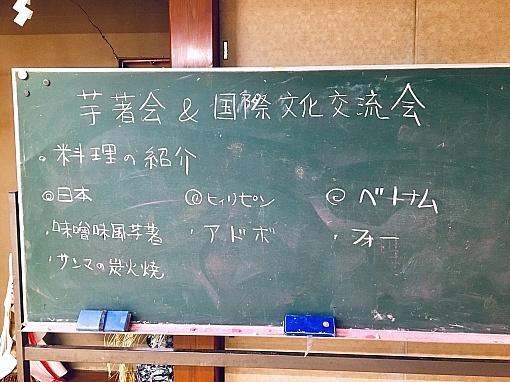 芋著会 & 国際文化交流会
。料理の紹介
◎日本 ◎ヒィリピン ◎ベトナム
・味噌味風芋著 ・アドボ ・フォー
・サンマの炭火焼